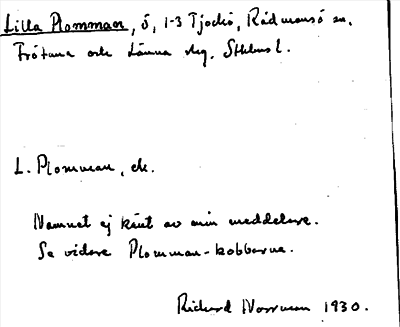 Lilla Plomman, ö, 1-3 Tjockö, Rådmansö sn,
Frötuna och Länna slg, Sthlms l.
L. Plomman, ek.
Namnet ej känt av min meddelare.
Se vidare Plomman-kobbarna.
Rickard Norrman 1930.